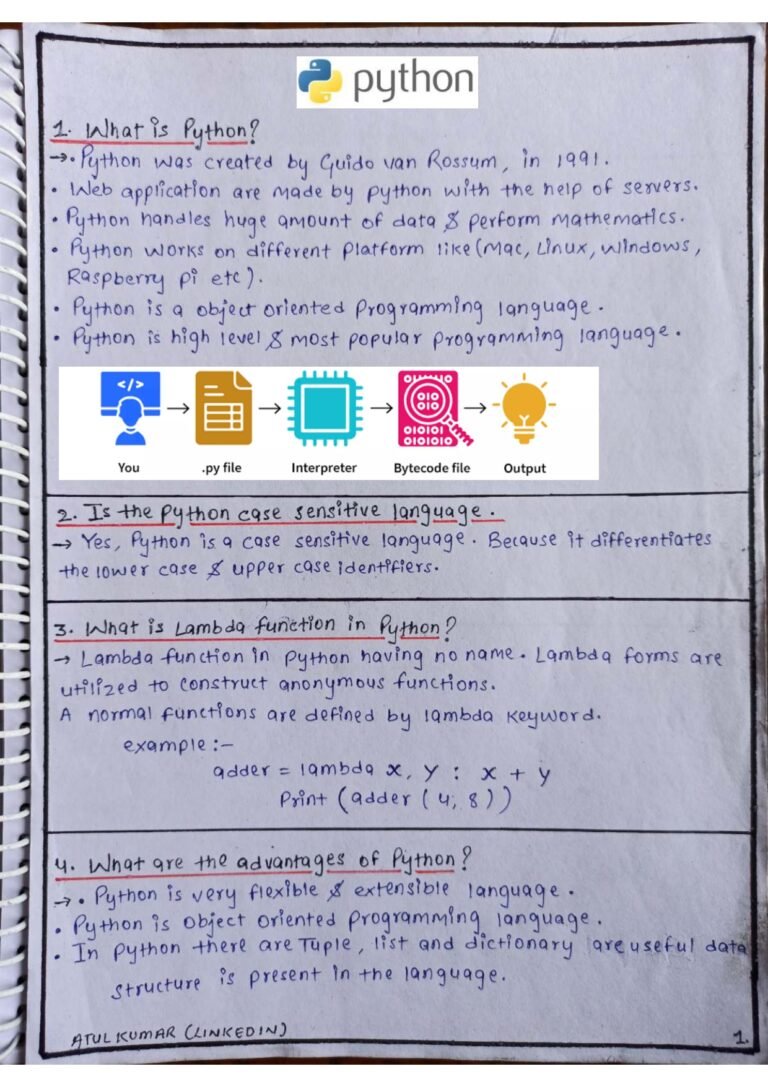 python
1. What is Python?
→• Python was created by Guido van Rossum, in 1991.
• Web application are made by python with the help of servers.
• Python handles huge amount of data & perform mathematics.
• Python works on different Platform like (Mac, Linux, Windows,
Raspberry pi etc).
• Python is a object oriented Programming language.
• Python is high level & most popular programming language.
</>
010
010
01010I
0I00I0I0
You
.py file
Interpreter
Bytecode file
Output
2. Is the Python case sensitive language.
→ Yes, Python is a case sensitive language. Because it differentiates
the lower case & upper case identifiers.
3. What is Lambda function in Python?
→ Lambda function in Python having no name. Lambda forms are
utilized to construct anonymous functions.
A normal functions are defined by lambda keyword.
example :-
adder = lambda x, y : x + y
Print (adder (4, 8))
4. What are the advantages of Python?
→ • Python is very flexible & extensible language.
• Python is object oriented programming language.
• In Python there are Tuple, list and dictionary are useful data
structure is present in the language.
ATUL KUMAR (LINKEDIN)
1.